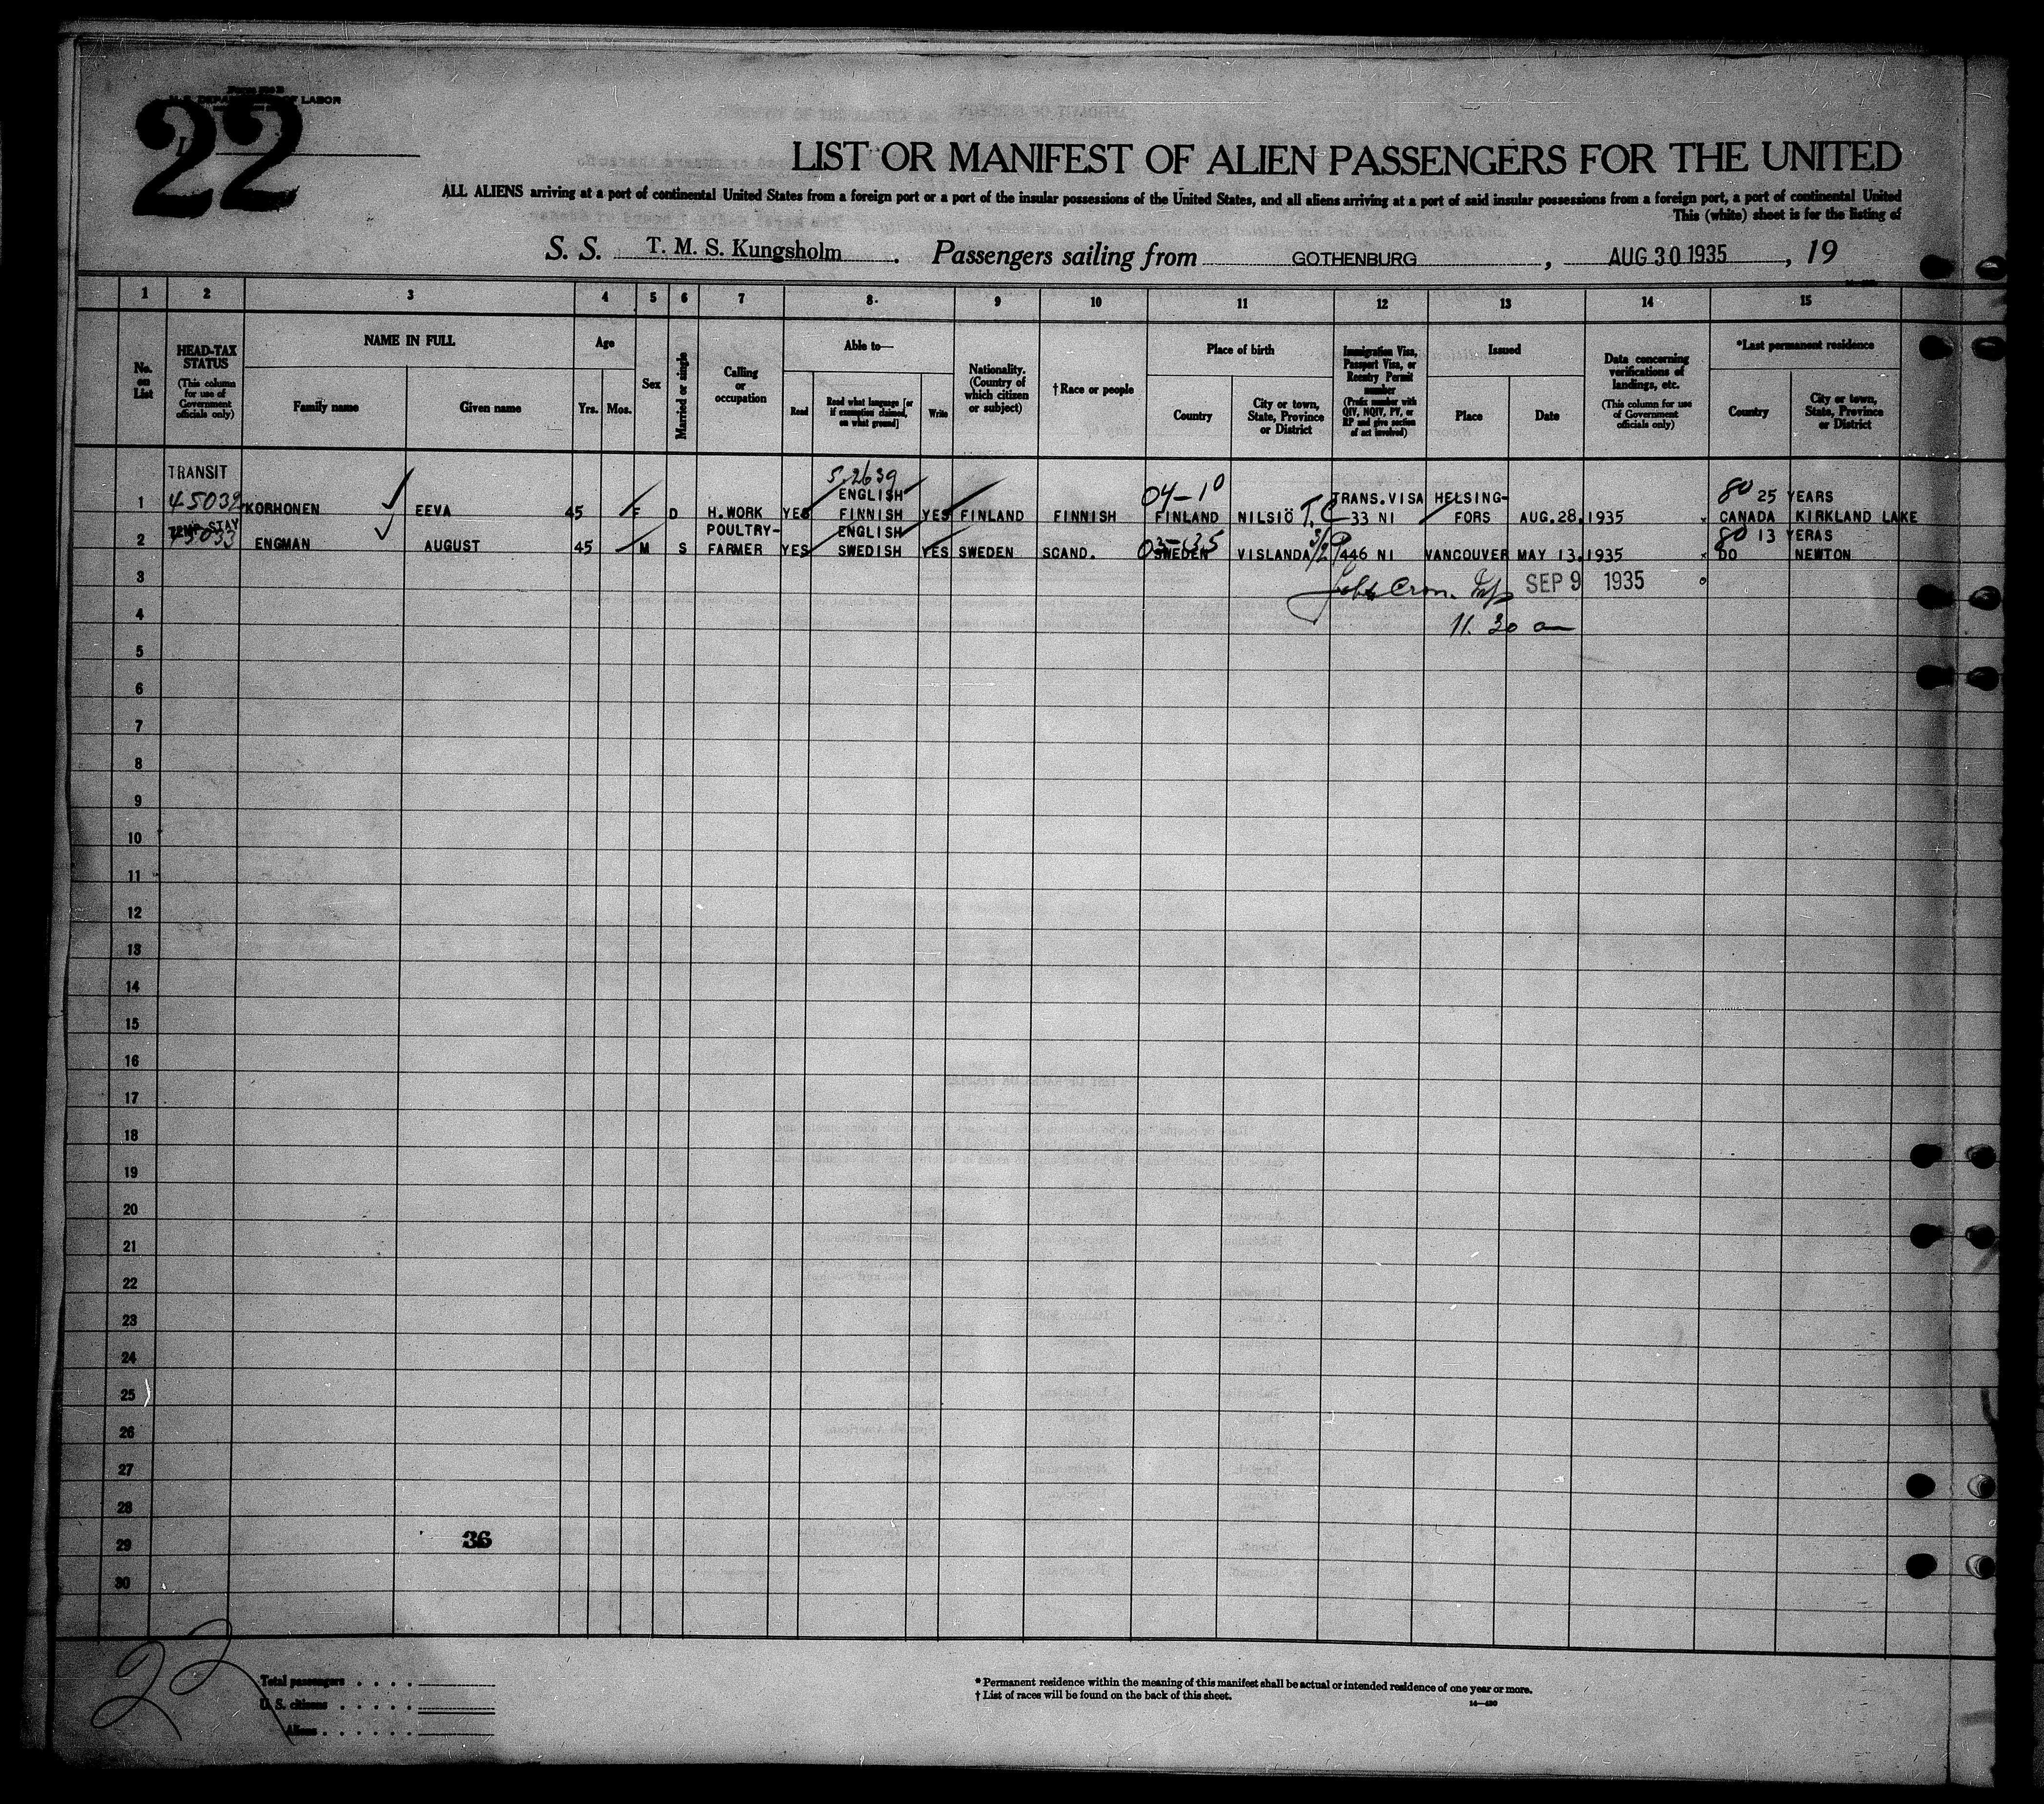 22
Form 500 B
U. S. DEPARTMENT OF LABOR
LIST OR MANIFEST OF ALIEN PASSENGERS FOR THE UNITED
ALL ALIENS arriving at a port of continental United States from a foreign port or a port of the insular possessions of the United States, and all aliens arriving at a port of said insular possessions from a foreign port, a port of continental United
This (white) sheet is for the listing of
S. S. T. M. S. Kungsholm. Passengers sailing from GOTHENBURG, AUG 30 1935, 19
1 2 3 4 5 6 7 8 9 10 11 12 13 14 15
No. on List
HEAD-TAX STATUS (This column for use of Government officials only)
NAME IN FULL
Family name
Given name
Age
Yrs. Mos.
Sex
Married or single
Calling or occupation
Able to—
Read
Read what language [or if exemption claimed, on what ground]
Write
Nationality. (Country of which citizen or subject)
† Race or people
Place of birth
Country
City or town, State, Province or District
Immigration Visa, Passport Visa, or Reentry Permit number (Prefix number with QIV, NQIV, PV, or RP and give section of act involved)
Issued
Place
Date
Data concerning verifications of landings, etc. (This column for use of Government officials only)
*Last permanent residence
Country
City or town, State, Province or District
TRANSIT 5.2639
45032 ENGLISH 04-10 TRANS. VISA HELSING- 80 25 YEARS
1 KORHONEN EEVA 45 F D H.WORK YES FINNISH YES FINLAND FINNISH FINLAND NILSIÖ T.C 33 NI FORS AUG.28.1935 CANADA KIRKLAND LAKE
TEMP STAY 45033 POULTRY- ENGLISH 80 13 YERAS
2 ENGMAN AUGUST 45 M S FARMER YES SWEDISH YES SWEDEN SCAND. SWEDEN VISLANDA 446 NI VANCOUVER MAY 13.1935 DO NEWTON
3 SEP 9 1935
4 11. 30 am
5
6
7
8
9
10
11
12
13
14
15
16
17
18
19
20
21
22
23
24
25
26
27
28
29 36
30
22
Total passengers
U. S. citizens
Aliens
* Permanent residence within the meaning of this manifest shall be actual or intended residence of one year or more.
† List of races will be found on the back of this sheet.
14—430